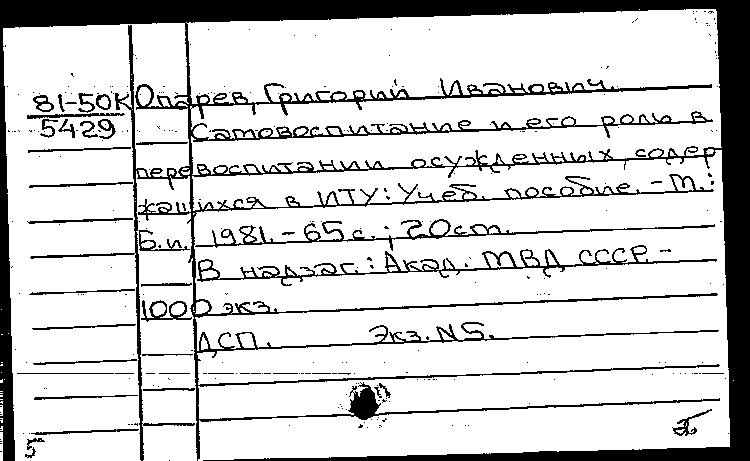 81-50К Опарев, Григорий Иванович.
5429 Самовоспитание и его роль в
перевоспитании осужденных, содер
жащихся в ИТУ: Учеб. пособие. - М.:
Б.и., 1981. - 65 с.; 20 см.
В надзаг.: Акад. МВД СССР. -
1000 экз.
ДСП. Экз. N5.
5